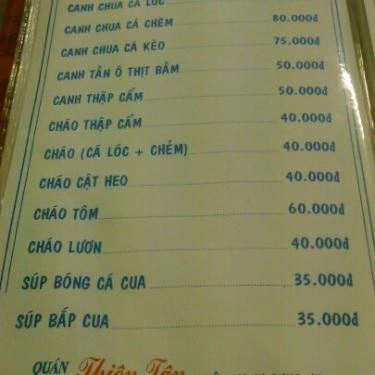 CANH CHUA CÁ LÓC
CANH CHUA CÁ CHẼM 80.000đ
CANH CHUA CÁ KÈO 75.000đ
CANH TẦN Ô THỊT BẰM 50.000đ
CANH THẬP CẨM 50.000đ
CHÁO THẬP CẨM 40.000đ
CHÁO (CÁ LÓC + CHẺM) 40.000đ
CHÁO CẬT HEO 40.000đ
CHÁO TÔM 60.000đ
CHÁO LƯƠN 40.000đ
SÚP BÓNG CÁ CUA 35.000đ
SÚP BẮP CUA 35.000đ
QUÁN Thiên Tân